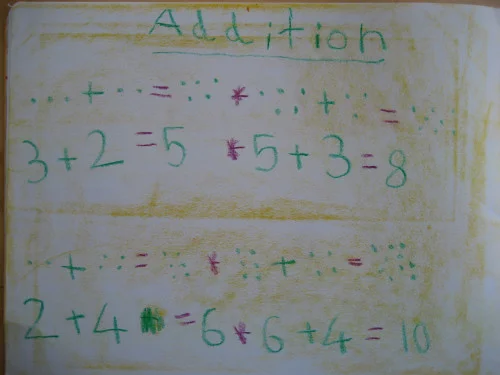 Addition
+ = * + =
3 + 2 = 5 * 5 + 3 = 8
+ = * + =
2 + 4 = 6 * 6 + 4 = 10